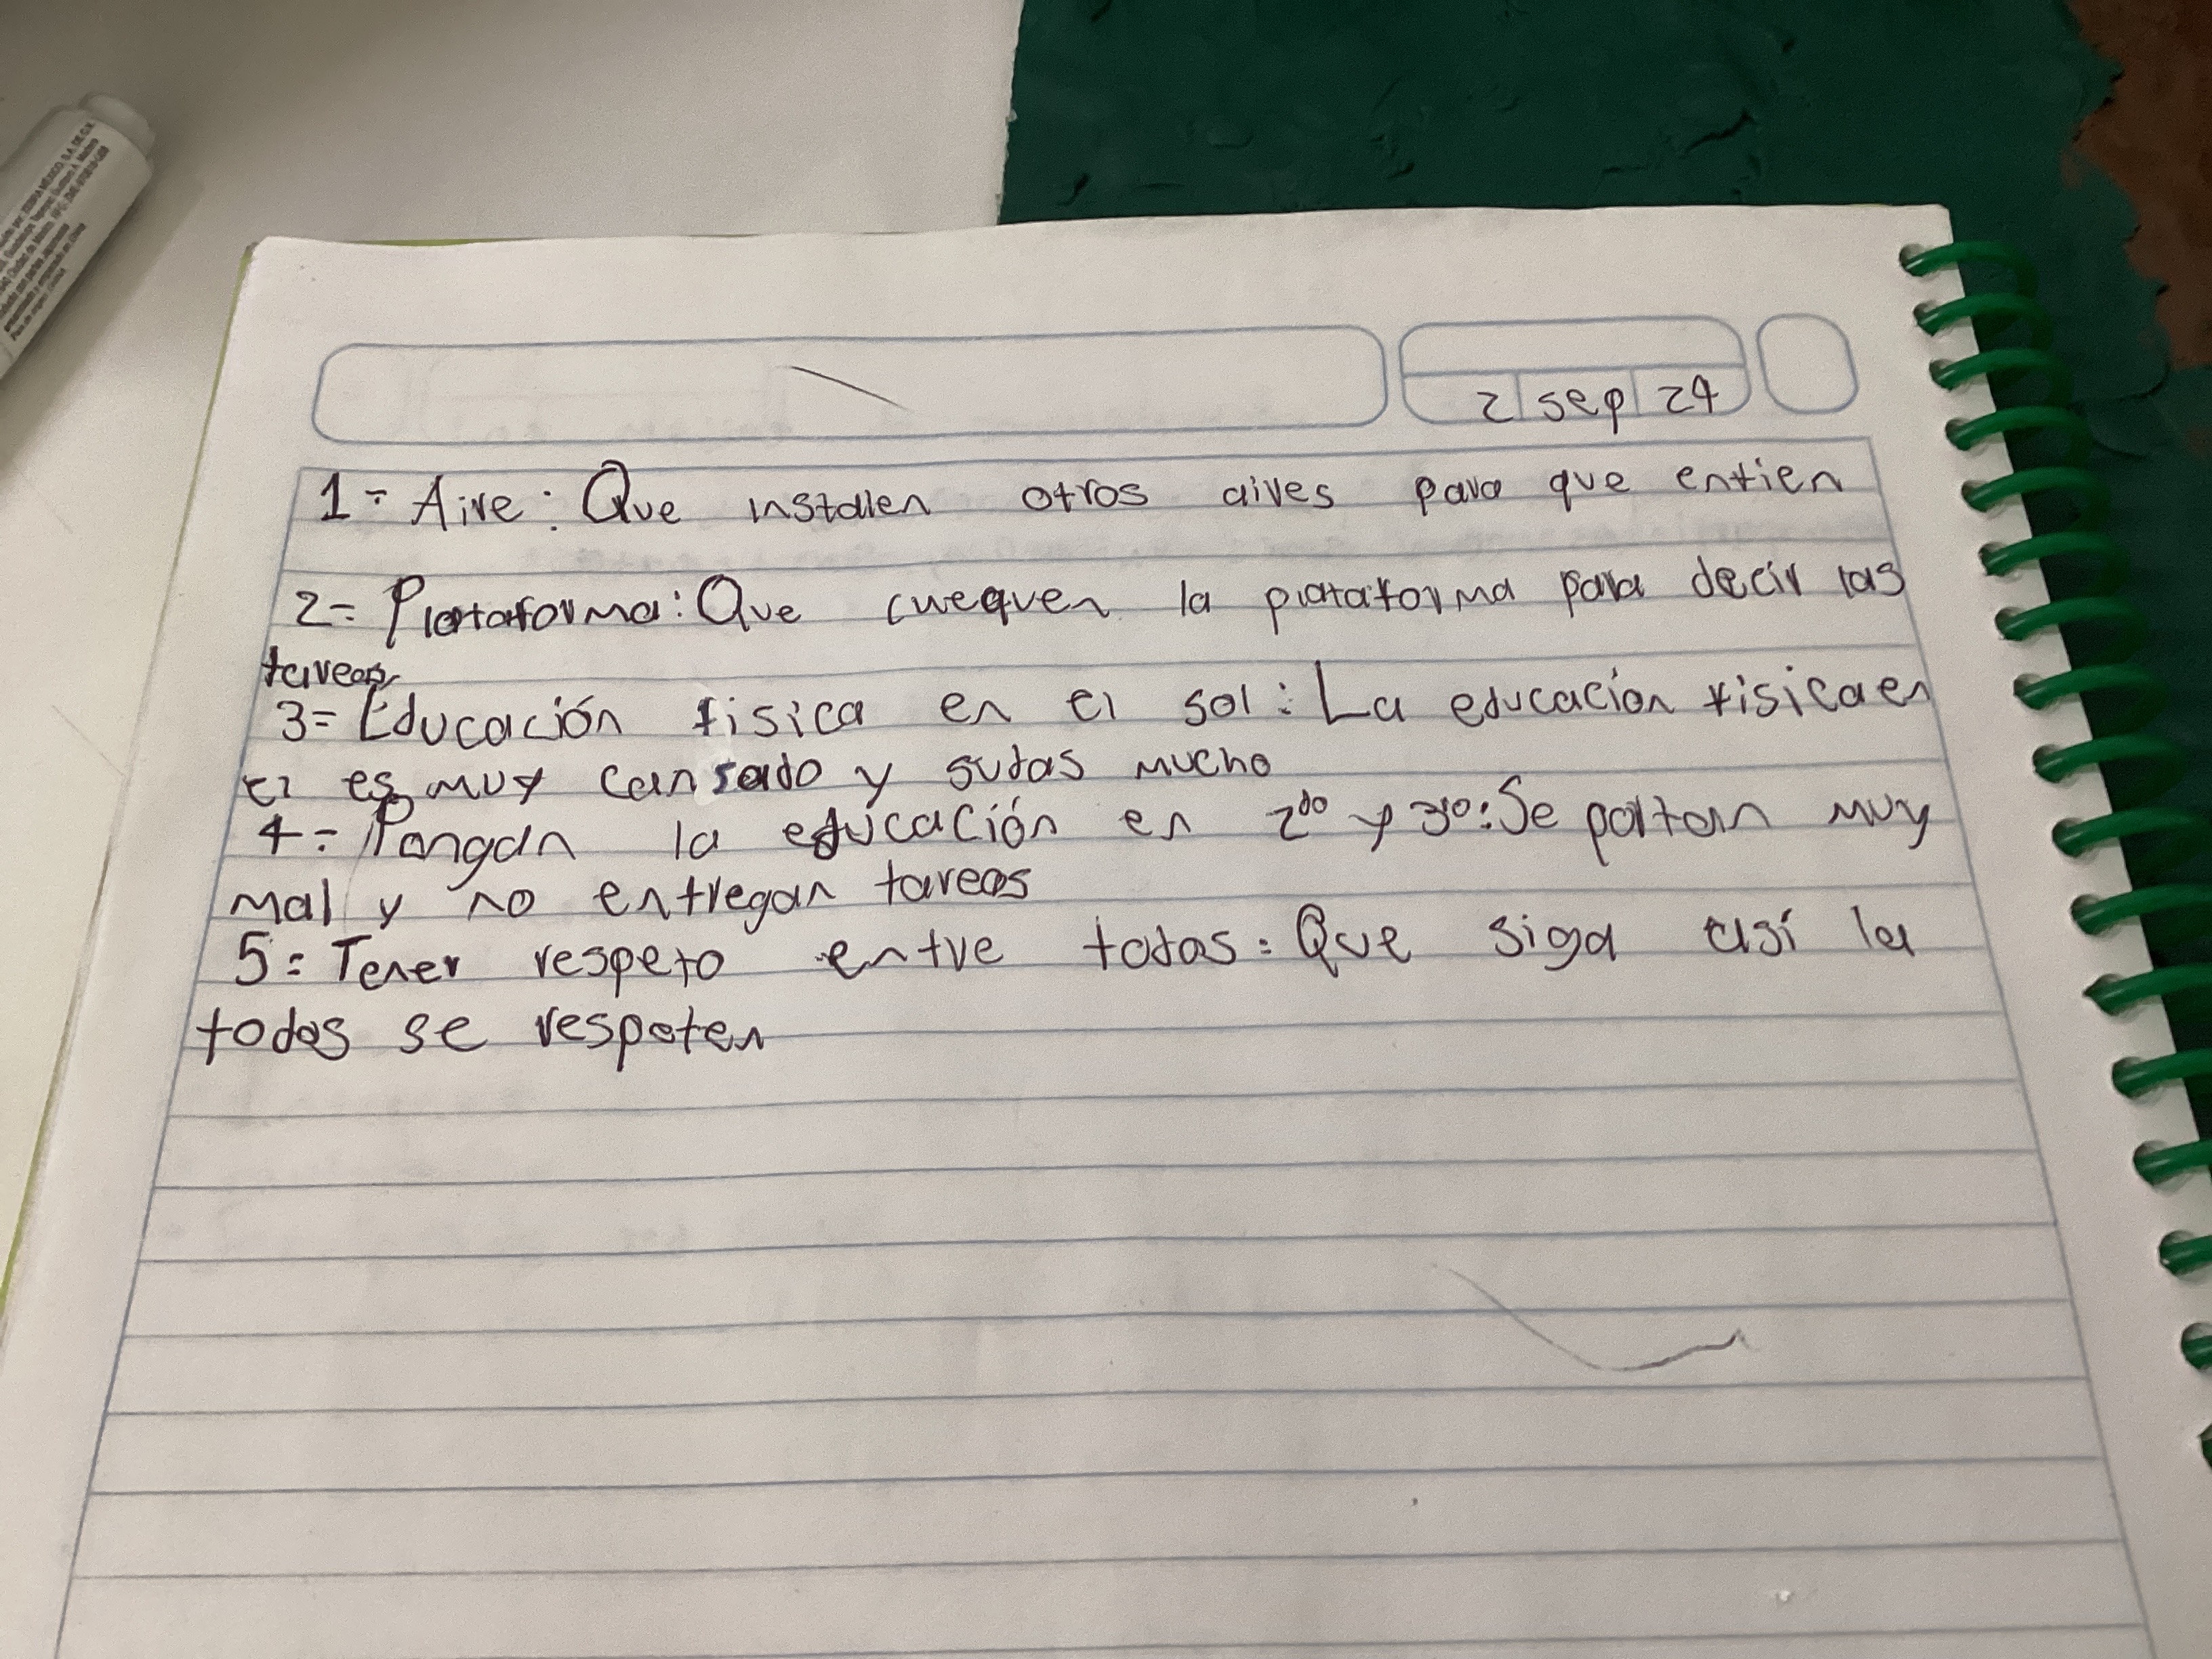 2 sep 24
1= Aire: Que instalen otros aires para que entien
2= Plataforma: Que cuequen la plataforma para decir las
tareas
3= Educación fisica en el sol: La educacion fisica en
el es muy cansado y sudas mucho
4= Pongan la educación en 2do y 3ro: Se portan muy
mal y no entregan tareas
5= Tener respeto entre todos: Que siga así la
todos se respeten